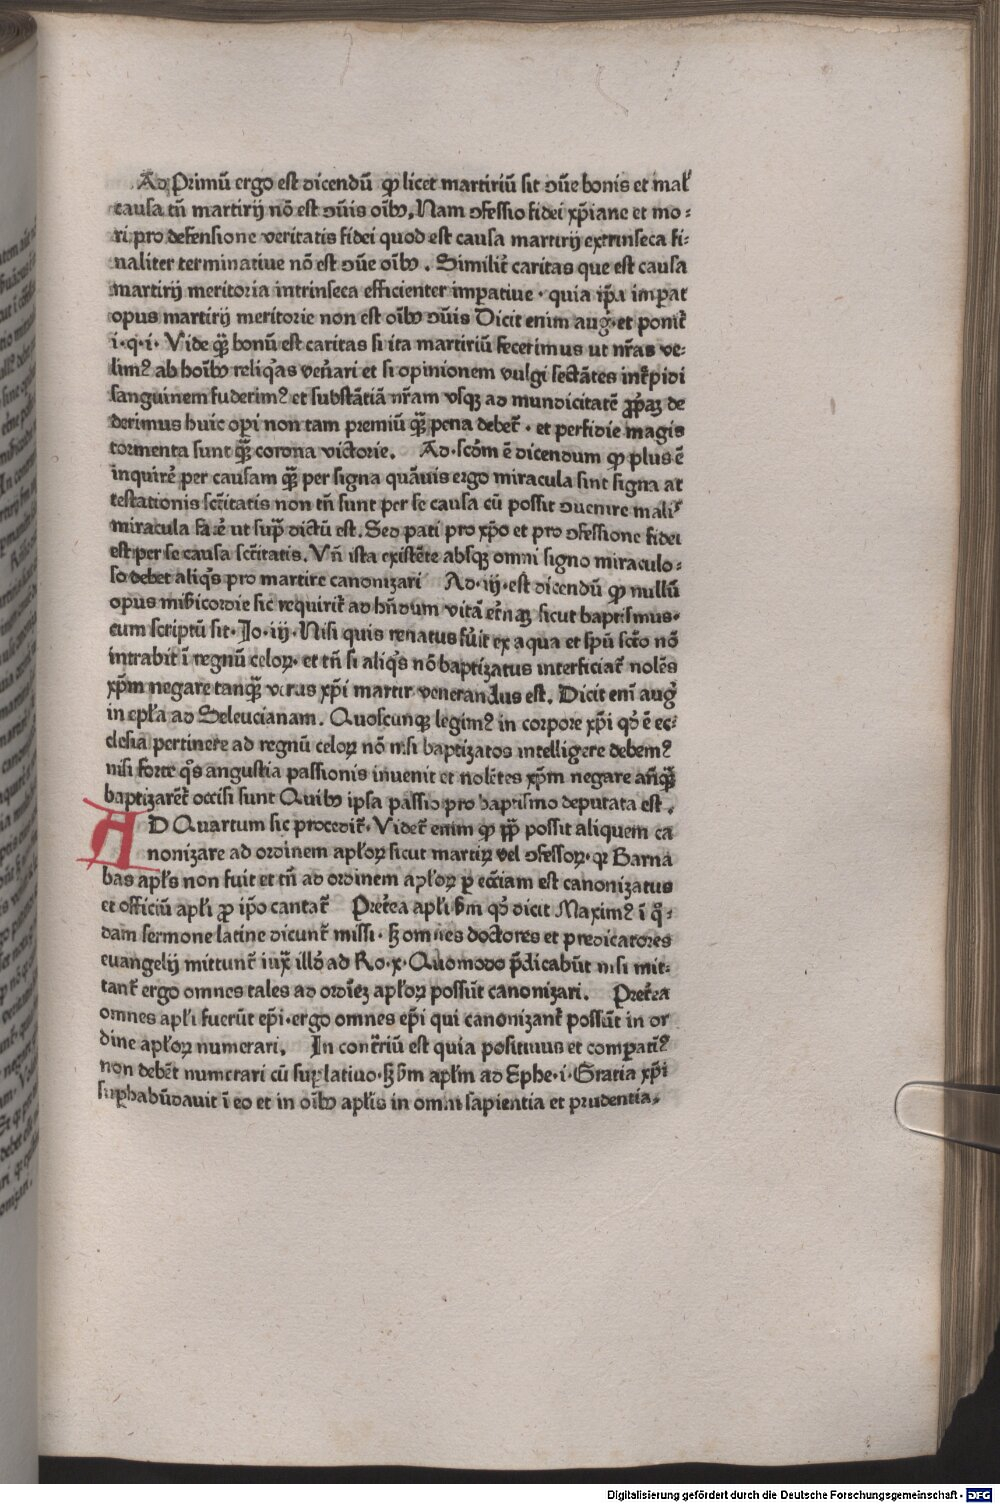 Ad Primū ergo est dicendū ꝙ licet martiriū sit ↄūe bonis et mal̕
causa tn̄ martirij nō est ↄūis oībꝫ. Nam ↄfessio fidei xp̄iane et mo⸗
ri pro defensione veritatis fidei quod est causa martirij extrinseca fi⸗
naliter terminatiue nō est ↄūe oībꝫ. Similit̄ caritas que est causa
martirij meritoria intrinseca efficienter imperatiue · quia ip̄a imꝑat
opus martirij meritorie non est oībꝫ ↄūis Dicit enim aug᷒ et ponit̄
i·q·i· Vide qꝫ̄ bonū est caritas si ita martiriū fecerimus ut nr̄as ve⸗
limꝰ ab hoībꝫ reliq̇as ven̄ari et si opinionem vulgi sectātes int̄pidi
sanguinem fuderimꝰ et substātiā nr̄am vsqꝫ ad mundicitatē ꝓp̄aꝫ de
derimus huic oꝑi non tam premiū qꝫ̄ pena debet̄ · et perfidie magis
tormenta sunt qꝫ̄ corona victorie. Ad·scd̄m ē dicendum ꝙ plus ē
inquire᷒ per causam qꝫ̄ per signa quāuis ergo miracula sint signa at
testationis sct̄itatis non tn̄ sunt per se causa cū possit ↄuenire mali᷒
miracula face᷒ ut sup᷒ dictū est. Sed pati pro xp̄o et pro ↄfessione fidei
est per se causa sct̄itatis. Vn̄ ista existēte absqꝫ omni signo miraculo⸗
so debet aliq̇s pro martire canonizari Ad·iij·est dicendū ꝙ nullū
opus mīscordie sic requirit̄ ad hn̄dum vitā et̄naꝫ sicut baptismus·
cum scriptū sit· Jo·iij· Nisi quis renatus fuit̄ ex aqua et spū scto᷒ nō
intrabit ī regnū celoꝝ· et tn̄ si aliq̇s nō baptizatus interficiat̄ nolēs
xp̄m negare tanqꝫ̄ verus xp̄i martir venerandus est. Dicit eni᷒ aug᷒
in epl̄a ad Seleucianam. Quoscunqꝫ legimꝰ in corpore xp̄i qd᷒ ē ec⸗
clesia pertinere ad regnū celoꝝ nō nisi baptizatos intelligere debemꝰ
nisi forte q̇s angustia passionis inuenit et nolētes xp̄m negare an̄qꝫ̄
baptizarēt̄ occisi sunt Quibꝫ ipsa passio pro baptismo deputata est.
AD Quartum sic procedit̄· Videt̄ enim ꝙ pp̄ possit aliquem ca
nonizare ad ordinem apl̄oꝝ sicut martiꝝ vel ↄfessoꝝ· qꝛ Barna
bas apl̄s non fuit et tn̄ ad ordinem apl̄oꝝ ꝑ eccl̄iam est canonizatus
et officiū apl̄i ꝓ ip̄o cantat̄ Pret̄ea apl̄i ẜm qd᷒ dicit Maximꝰ ī q̄⸗
dam sermone latine dicunt̄ missi· sꝫ omnes doctores et predicatores
euangelij mittunt̄ iux̄ illd᷒ ad Ro·x· Quomodo p̄dicabūt nisi mit⸗
tant̄ ergo omnes tales ad ordīeꝫ apl̄oꝝ possūt canonizari. Pret̄ea
omnes apl̄i fuerūt ep̄i· ergo omnes ep̄i qui canonizant̄ possūt in or
dine apl̄oꝝ numerari. In cont̄riū est quia positiuus et comparatiꝰ
non debēt numerari cū suꝑlatiuo· sꝫ ẜm apl̄m ad Ephe·i· Gratia xp̄i
suꝑhabūdauit ī eo et in oībꝫ apl̄is in omni sapientia et prudentia.
Digitalisierung gefördert durch die Deutsche Forschungsgemeinschaft - DFG